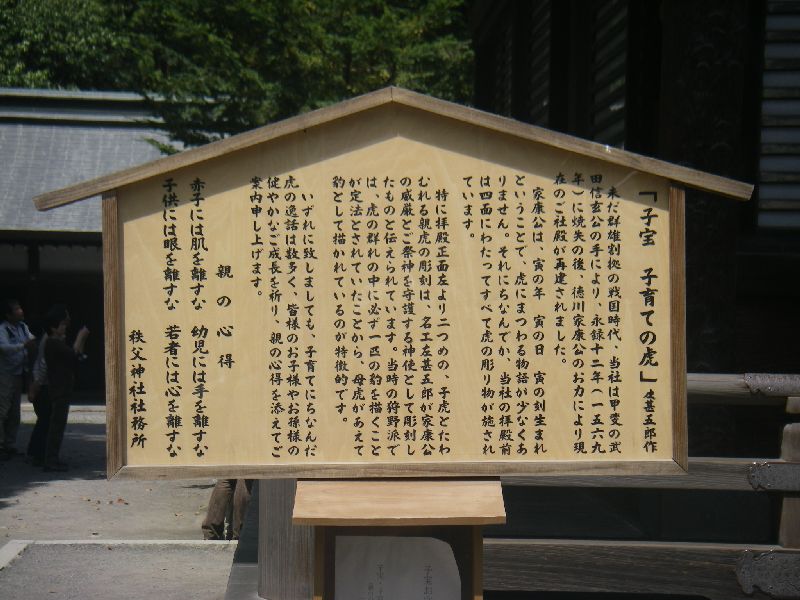 「子宝 子育ての虎」 左甚五郎作
未だ群雄割拠の戦国時代、当社は甲斐の武
田信玄公の手により、永禄十二年（一五六九
年）に焼失の後、徳川家康公のお力により現
在のご社殿が再建されました。
家康公は、寅の年 寅の日 寅の刻生まれ
ということで、虎にまつわる物語が少なくあ
りません。それにちなんでか、当社の拝殿前
は四面にわたってすべて虎の彫り物が施され
ています。
特に拝殿正面左より二つめの、子虎とたわ
むれる親虎の彫刻は、名工左甚五郎が家康公
の威厳とご祭神を守護する神使として彫刻し
たものと伝えられています。当時の狩野派で
は、虎の群れの中に必ず一匹の豹を描くこと
が定法とされていたことから、母虎があえて
豹として描かれているのが特徴的です。
いずれに致しましても、子育てにちなんだ
虎の逸話は数多く、皆様のお子様やお孫様の
健やかなご成長を祈り、親の心得を添えてご
案内申し上げます。
親の心得
赤子には肌を離すな 幼児には手を離すな
子供には眼を離すな 若者には心を離すな
秩父神社社務所